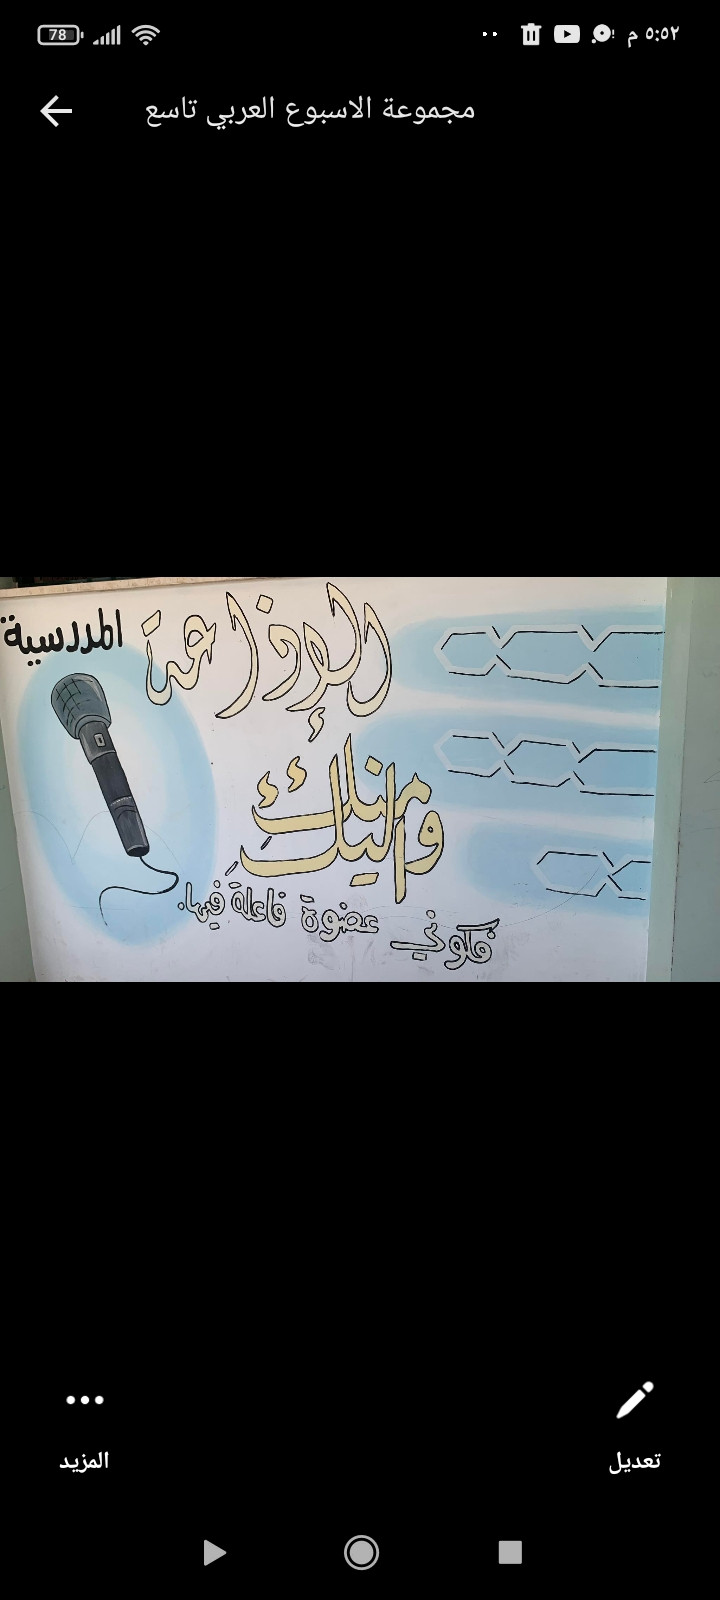 78
٥:٥٢ م
مجموعة الاسبوع العربي تاسع
الإذاعة المدرسية
منكِ
وإليكِ
فكوني عضوة فاعلة فيها.
المزيد
تعديل